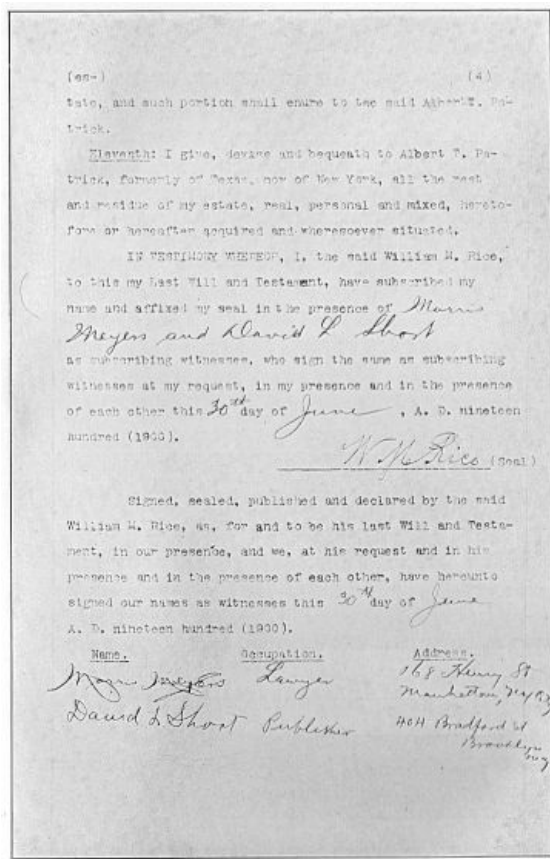 (es-) (4)
tate, and such portion shall enure to the said Albert T. Pa-
trick.
Eleventh: I give, devise and bequeath to Albert T. Pa-
trick, formerly of Texas, now of New York, all the rest
and residue of my estate, real, personal and mixed, hereto-
fore or hereafter acquired and wheresoever situated.
IN TESTIMONY WHEREOF, I, the said William M. Rice,
to this my Last Will and Testament, have subscribed my
name and affixed my seal in the presence of Morris
Meyers and David L Short
as subscribing witnesses, who sign the same as subscribing
witnesses at my request, in my presence and in the presence
of each other this 30th day of June , A. D. nineteen
hundred (1900).
W M Rice (Seal)
Signed, sealed, published and declared by the said
William M. Rice, as, for and to be his last Will and Testa-
ment, in our presence, and we, at his request and in his
presence and in the presence of each other, have hereunto
signed our names as witnesses this 30th day of June
A. D. nineteen hundred (1900).
Name. Occupation. Address.
Morris Meyers Lawyer 168 Henry St
Manhattan, NY City
David L Short Publisher 404 Bradford St
Brooklyn
NY